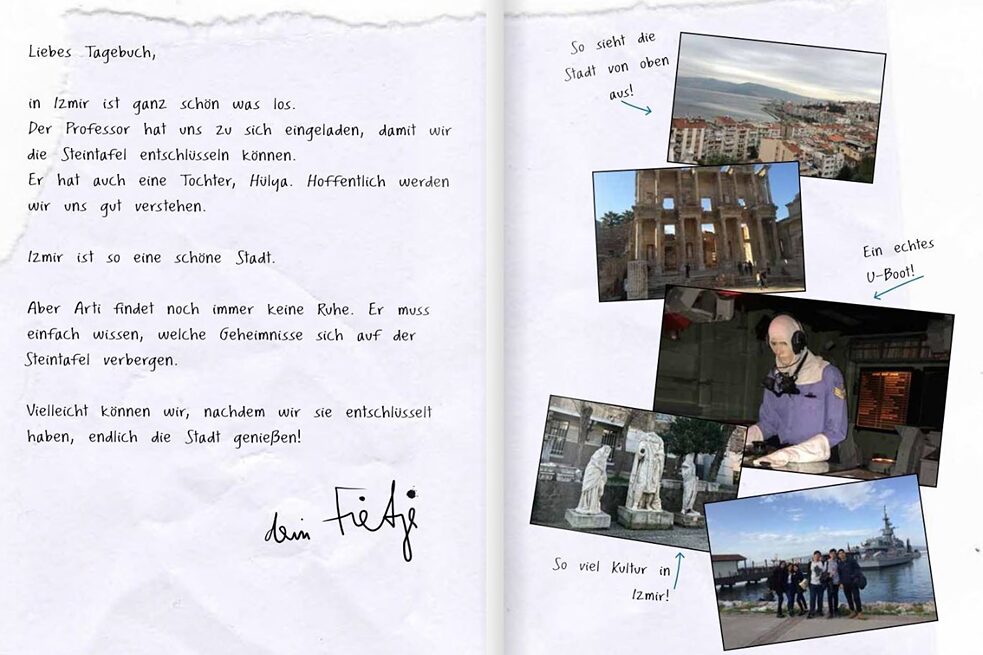 Liebes Tagebuch,
in Izmir ist ganz schön was los.
Der Professor hat uns zu sich eingeladen, damit wir
die Steintafel entschlüsseln können.
Er hat auch eine Tochter, Hülya. Hoffentlich werden
wir uns gut verstehen.
Izmir ist so eine schöne Stadt.
Aber Arti findet noch immer keine Ruhe. Er muss
einfach wissen, welche Geheimnisse sich auf der
Steintafel verbergen.
Vielleicht können wir, nachdem wir sie entschlüsselt
haben, endlich die Stadt genießen!
dein Fietje
So sieht die
Stadt von oben
aus!
Ein echtes
U-Boot!
So viel Kultur in
Izmir!